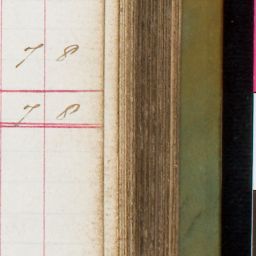 7 8
7 8